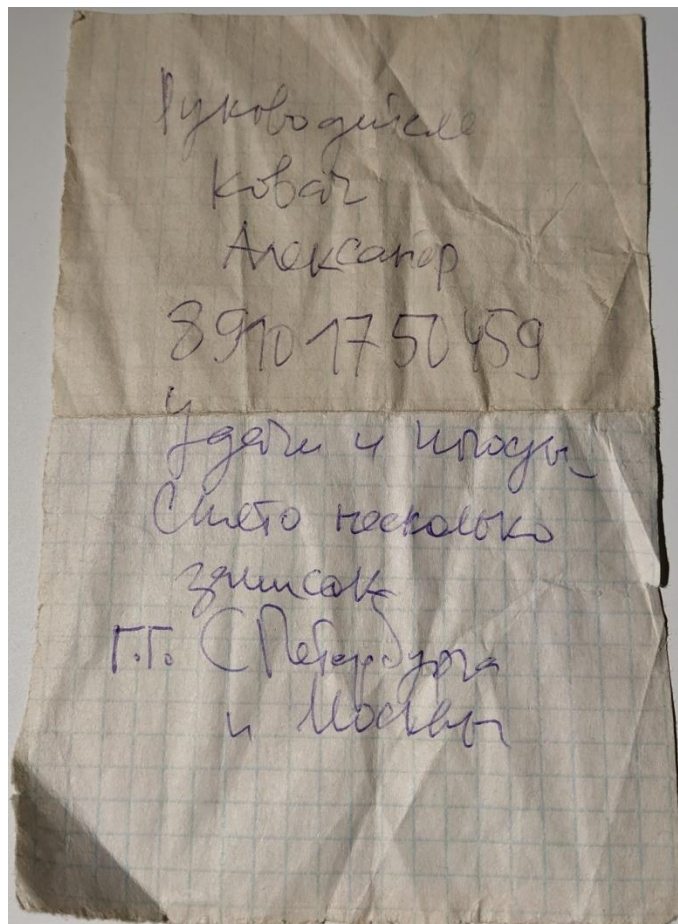 Руководитель
Ковач
Александр
89101750459
Удачи и погоды
Снято несколько
записок
Г.Г. С Петербурга
и Москвы